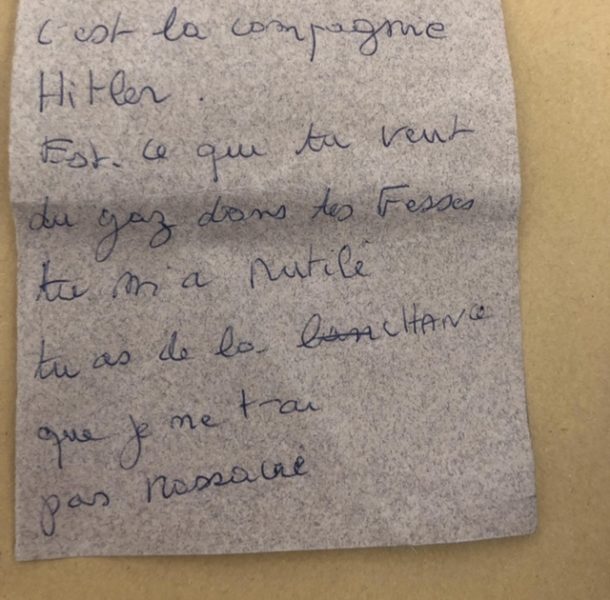 c'est la compagnie
Hitler.
Est. ce que tu veut
du gaz dans tes Fesses
tu m'a mutilé
tu as de la CHANCe
que je ne t'ai
pas massacré